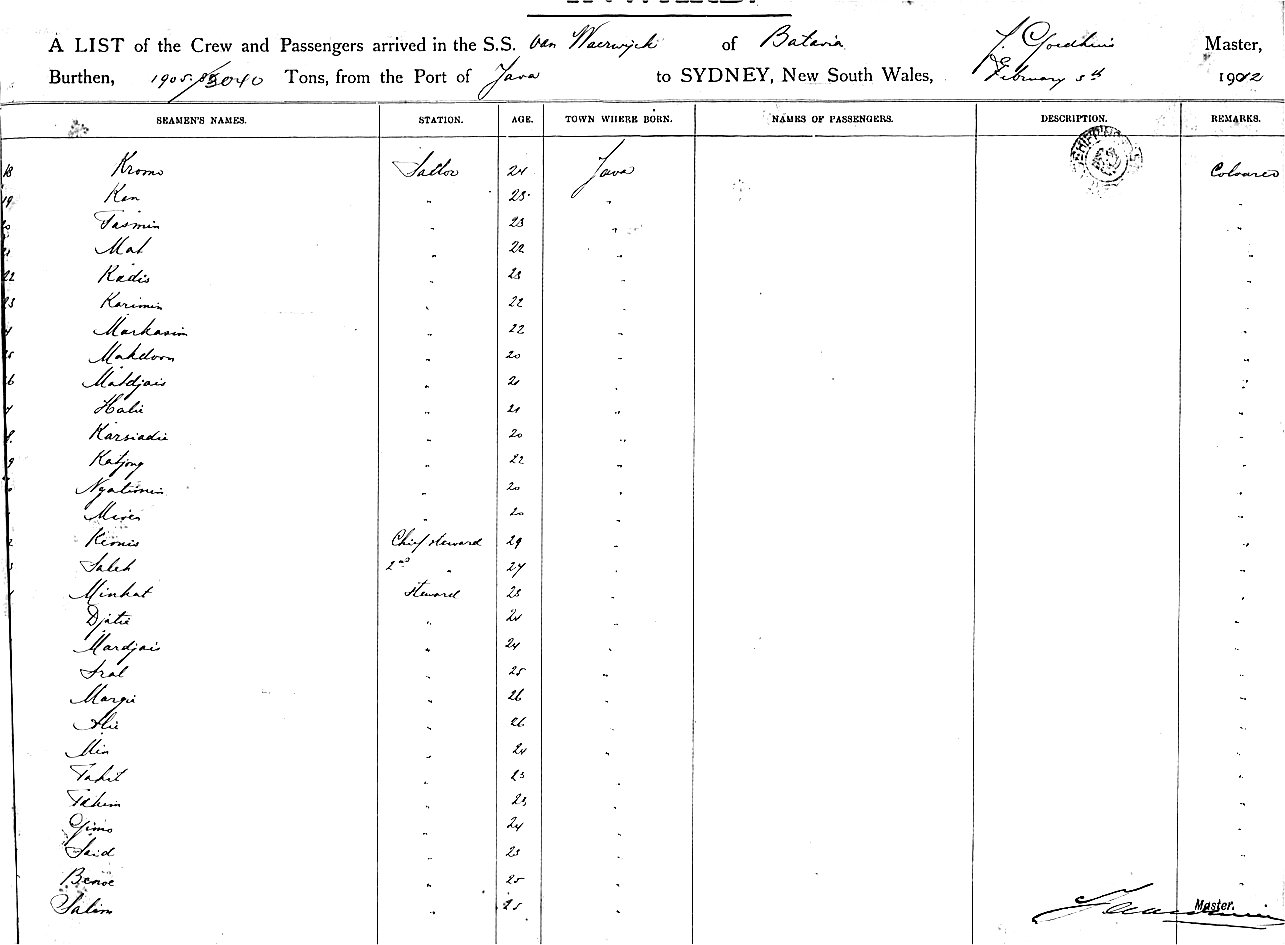 A LIST of the Crew and Passengers arrived in the S.S. Van Waerwijck of Batavia Master,
Burthen, 1905 Tons, from the Port of Java to SYDNEY, New South Wales, February 5th 1912
SEAMEN'S NAMES. STATION. AGE. TOWN WHERE BORN. NAMES OF PASSENGERS. DESCRIPTION. REMARKS.
18 Kromo Sailor 24 Java Coloured
19 Kan " 25 " "
Tasmin " 23 " "
Mat " 22 " "
22 Kadis " 23 " "
23 Karimin " 22 " "
Markasim " 22 " "
25 Makdoon " 20 " "
26 Matdjais " 21 " "
Halie " 21 " "
8 Karsiadie " 20 " "
9 Katjong " 22 " "
Ngatimin " 20 " "
Miren " 20 " "
2 Kemis Chief Steward 29 " "
3 Saleh 2nd " 27 " "
Minhat Steward 23 " "
Djatie " 21 " "
Mardjais " 24 " "
" 25 " "
Margie " 26 " "
Alie " 26 " "
Min " 24 " "
Tahil " 23 " "
Tahim " 23 " "
" 24 " "
Said " 23 " "
Benoe " 25 " "
Salim " 25 " "
Master.